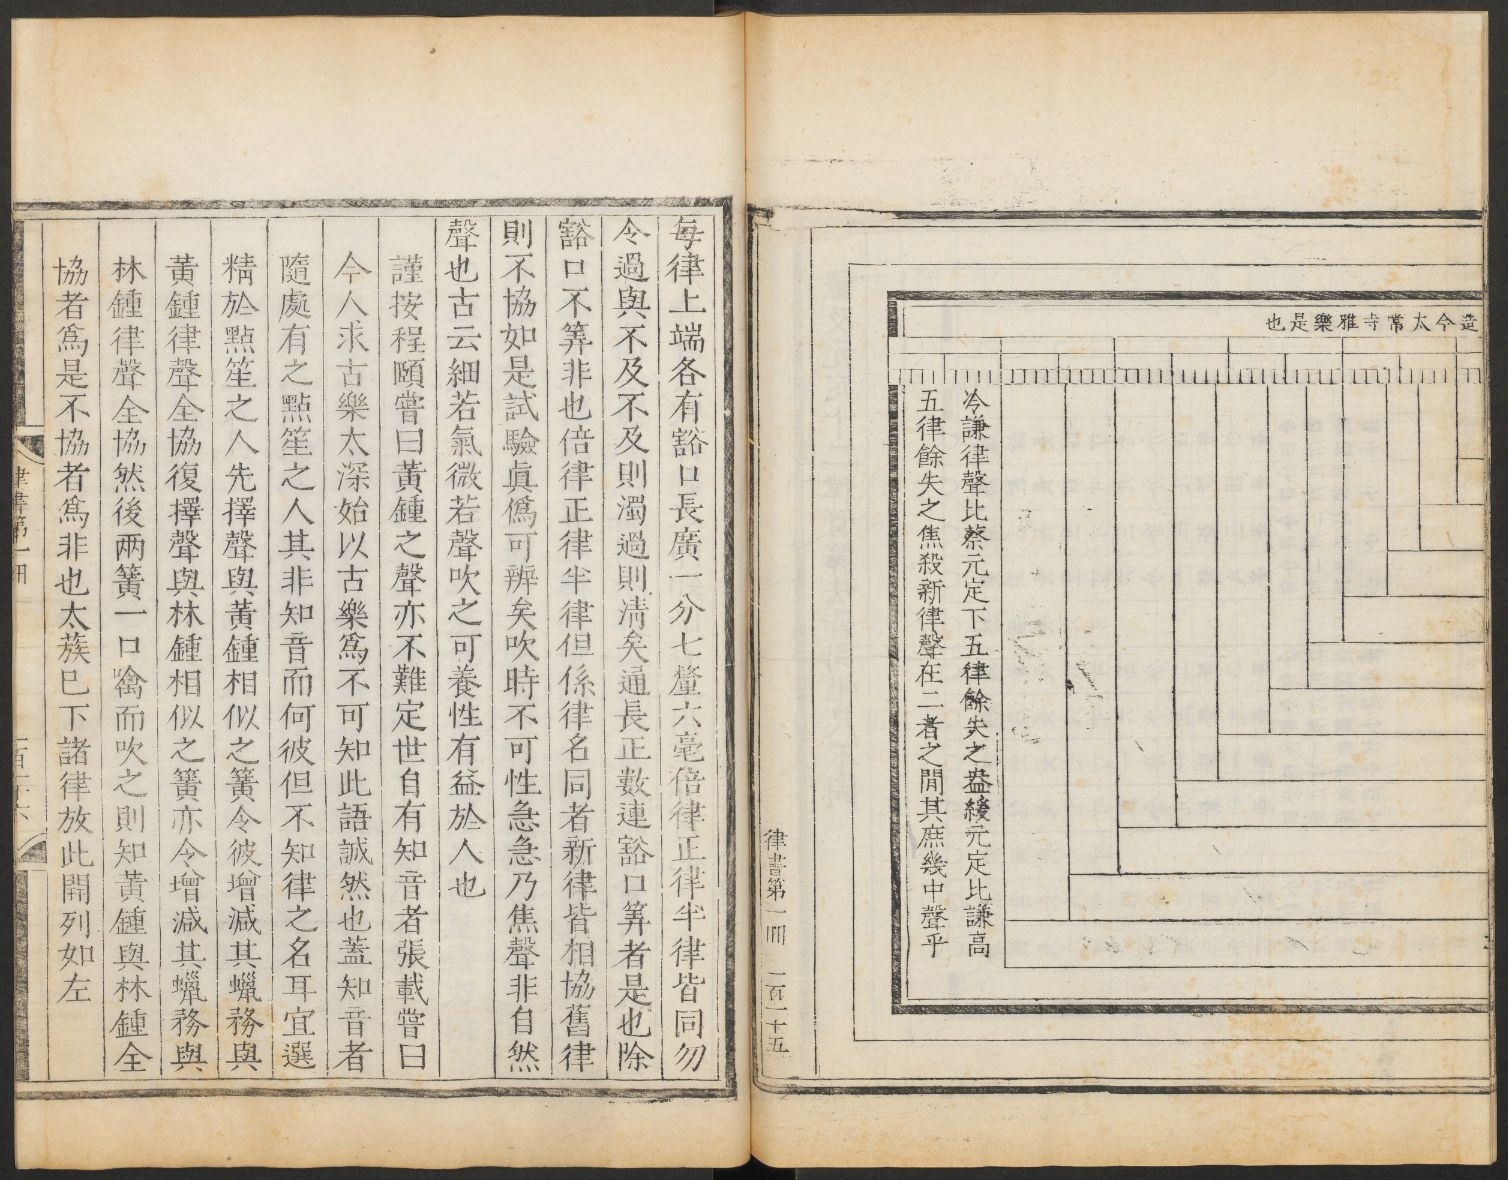 造今太常寺雅樂是也
冷謙律聲比蔡元定下五律餘失之盎緩元定比謙高
五律餘失之焦殺新律聲在二者之間其庶幾中聲乎
律書第一冊 一百一十五
每律上端各有豁口長廣一分七釐六毫倍律正律半律皆同勿
令過與不及不及則濁過則清矣通長正數連豁口筭者是也除
豁口不筭非也倍律正律半律但係律名同者新律皆相協舊律
則不協如是試驗眞僞可辨矣吹時不可性急急乃焦聲非自然
聲也古云細若氣微若聲吹之可養性有益於人也
謹按程頤嘗曰黃鍾之聲亦不難定世自有知音者張載嘗曰
今人求古樂太深始以古樂爲不可知此語誠然也蓋知音者
隨處有之點笙之人其非知音而何彼但不知律之名耳宜選
精於點笙之人先擇聲與黃鍾相似之簧令彼增減其蠟務與
黃鍾律聲全協復擇聲與林鍾相似之簧亦令增減其蠟務與
林鍾律聲全協然後兩簧一口噙而吹之則知黃鍾與林鍾全
協者爲是不協者爲非也太蔟已下諸律放此開列如左
律書第一冊